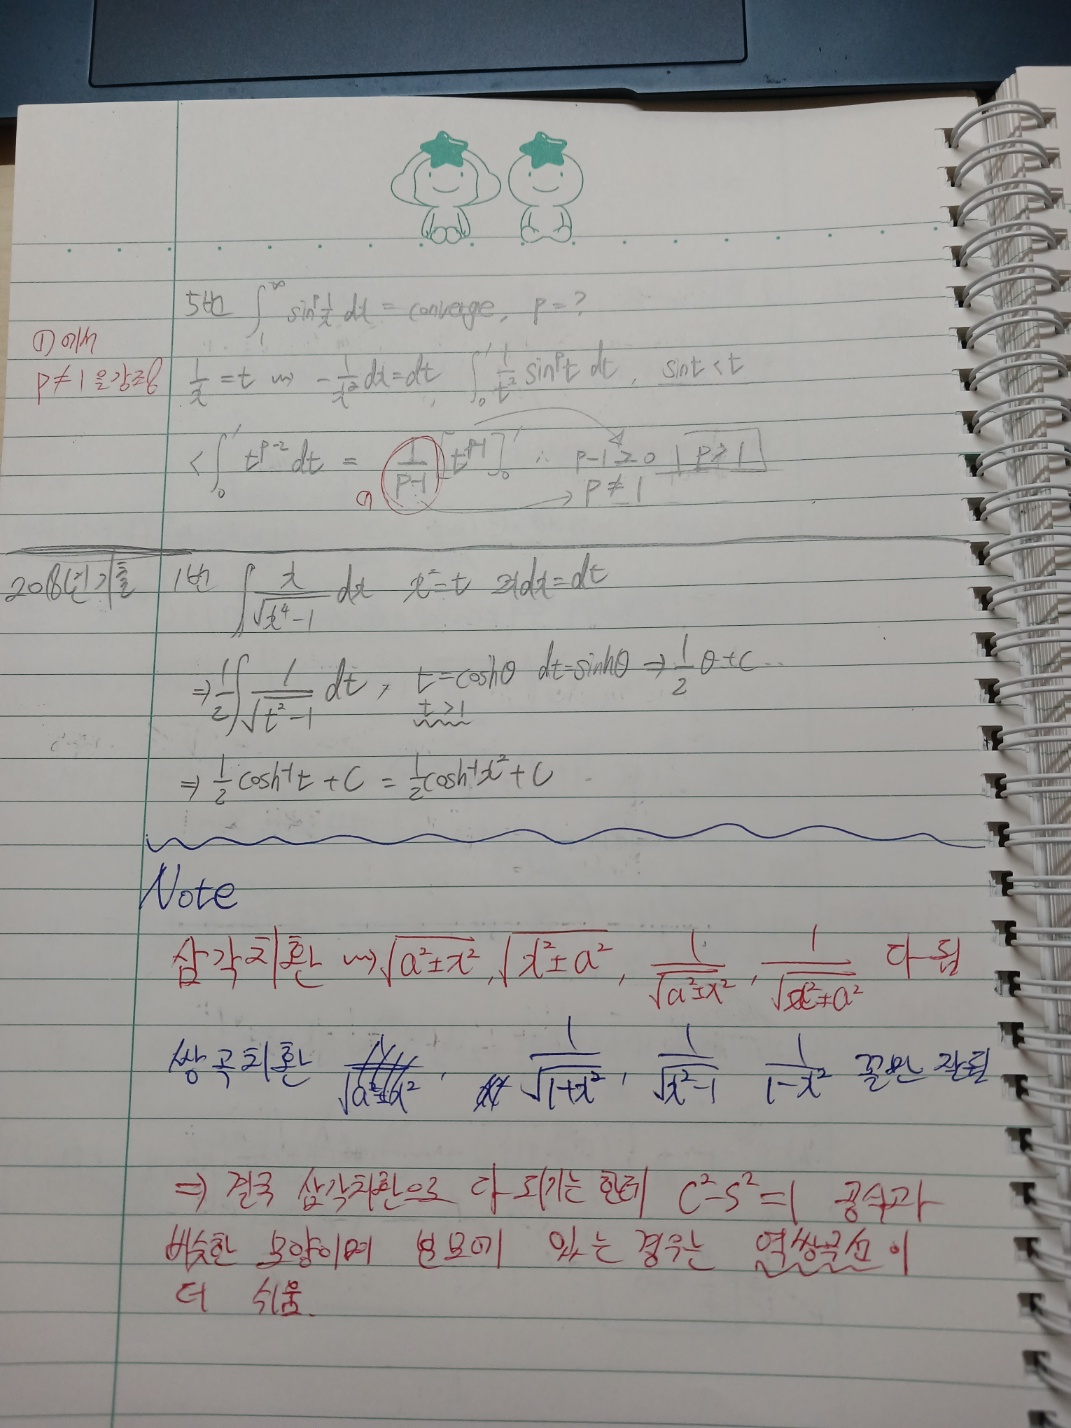 5번 ∫₁^∞ sin^p 1/x dx = converge, p = ?
① 에서
p≠1 을 강조함
1/x = t ⇝ -1/x² dx = dt, ∫₀¹ 1/t² sin^p t dt, sin t < t
< ∫₀¹ t^(p-2) dt = 1/(p-1) [t^(p-1)]₀¹ ∴ p-1 ≥ 0 p ≥ 1
p ≠ 1
기출 1번 ∫ x/√(x⁴-1) dx x² = t 2xdx = dt
⇒ 1/2 ∫ 1/√(t²-1) dt, t = coshθ dt = sinhθ ⇒ 1/2 θ + C
t > 1
⇒ 1/2 cosh⁻¹t + C = 1/2 cosh⁻¹x² + C
Note
삼각치환 ⇝ √(a²±x²), √(x²±a²), 1/√(a²±x²), 1/√(x²±a²) 다 됨
쌍곡치환 1/√(1+x²), 1/√(x²-1) 1/(1-x²) 꼴만 잘됨
⇒ 결국 삼각치환으로 다 되기는 한데 C²-S²=1 공식과
비슷한 모양이며 분모에 있는 경우는 역쌍곡선이
더 쉬움.